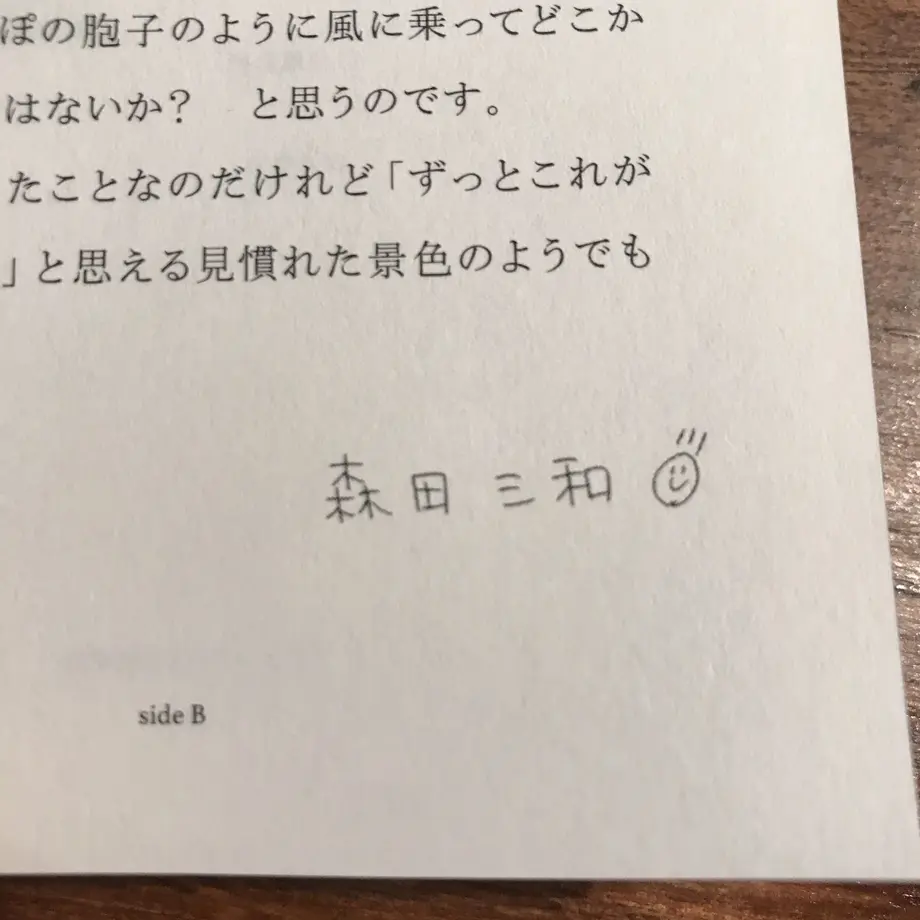 ぽの胞子のように風に乗ってどこか
はないか?　と思うのです。
たことなのだけれど「ずっとこれが
」と思える見慣れた景色のようでも
森田 三和
side B